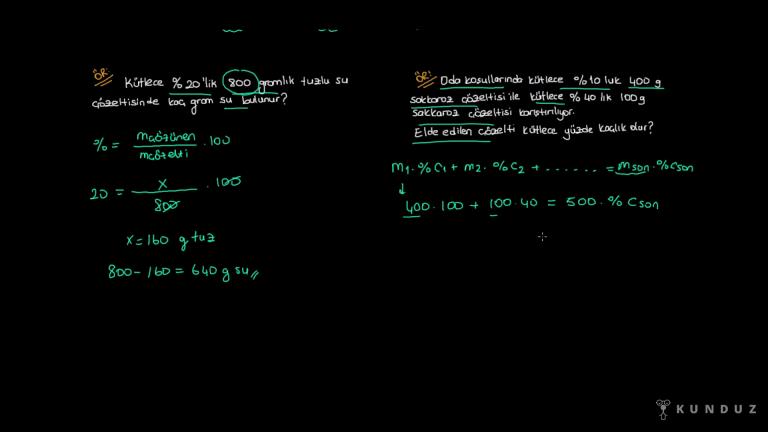 ÖR:
Kütlece %20'lik 800 gramlık tuzlu su
çözeltisinde kaç gram su bulunur?
% = mçözünen / mçözelti . 100
20 = x / 800 . 100
x = 160 g tuz
800 - 160 = 640 g su //
ÖR:
Oda koşullarında kütlece %10 luk 400 g
sakkaroz çözeltisi ile kütlece %40 lık 100 g
sakkaroz çözeltisi karıştırılıyor.
Elde edilen çözelti kütlece yüzde kaçlık olur?
m1 . %C1 + m2 . %C2 + ...... = mson . %Cson
400 . 100 + 100 . 40 = 500 . % Cson
KUNDUZ